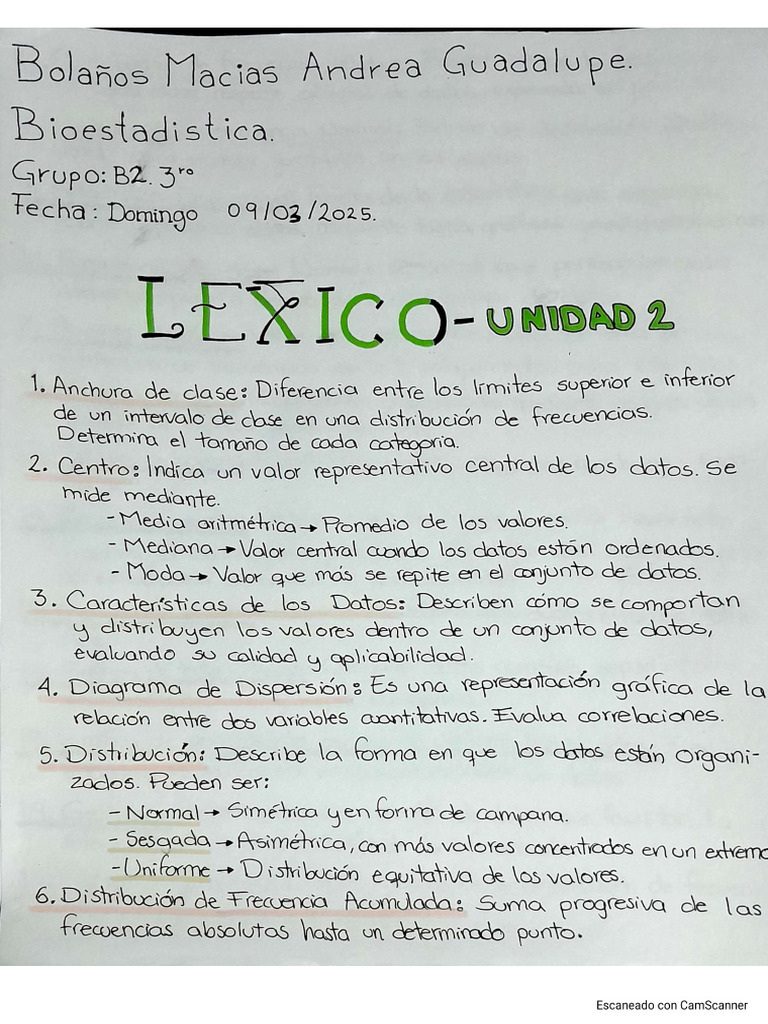 Bolaños Macias Andrea Guadalupe.
Bioestadistica.
Grupo: B2. 3ro
Fecha: Domingo 09/03/2025.
LEXICO - UNIDAD 2
1. Anchura de clase: Diferencia entre los límites superior e inferior
de un intervalo de clase en una distribución de frecuencias.
Determina el tamaño de cada categoría.
2. Centro: Indica un valor representativo central de los datos. Se
mide mediante.
- Media aritmétrica → Promedio de los valores.
- Mediana → Valor central cuando los datos están ordenados.
- Moda → Valor que más se repite en el conjunto de datos.
3. Características de los Datos: Describen cómo se comportan
y distribuyen los valores dentro de un conjunto de datos,
evaluando su calidad y aplicabilidad.
4. Diagrama de Dispersión: Es una representación gráfica de la
relación entre dos variables cuantitativas. Evalua correlaciones.
5. Distribución: Describe la forma en que los datos están organi-
zados. Pueden ser:
- Normal → Simétrica y en forma de campana.
- Sesgada → Asimétrica, con más valores concentrados en un extremo
- Uniforme → Distribución equitativa de los valores.
6. Distribución de Frecuencia Acumulada: Suma progresiva de las
frecuencias absolutas hasta un determinado punto.
Escaneado con CamScanner